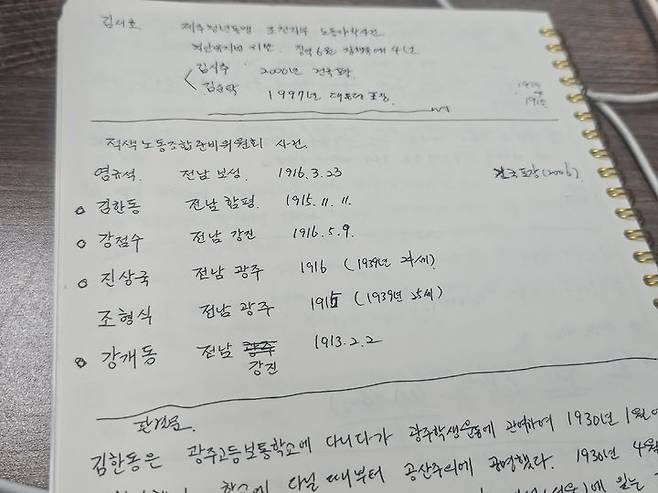 김시호 제주청년동맹 조천지부 노동야학사건
치안유지법 위반 징역 6월 집행유예 4년
김시주 2000년 건국포장
김순탁 1997년 대통령 표창
적색노동조합준비위원회 사건
염규석. 전남 보성. 1916.3.23 건국포장(2006)
김한동 전남 함평. 1915.11.11.
강점수 전남 강진 1916.5.9.
진상국 전남 광주 1916 (1939년 24세)
조형식 전남 광주 1915 (1939년 25세)
강개동 전남 강진 1913.2.2
판결문.
김한동은 광주고등보통학교에 다니다가 광주학생운동에 관여하여 1930년 1월에
학교에 다닐 때부터 공산주의에 공명했다. 1930년 4월